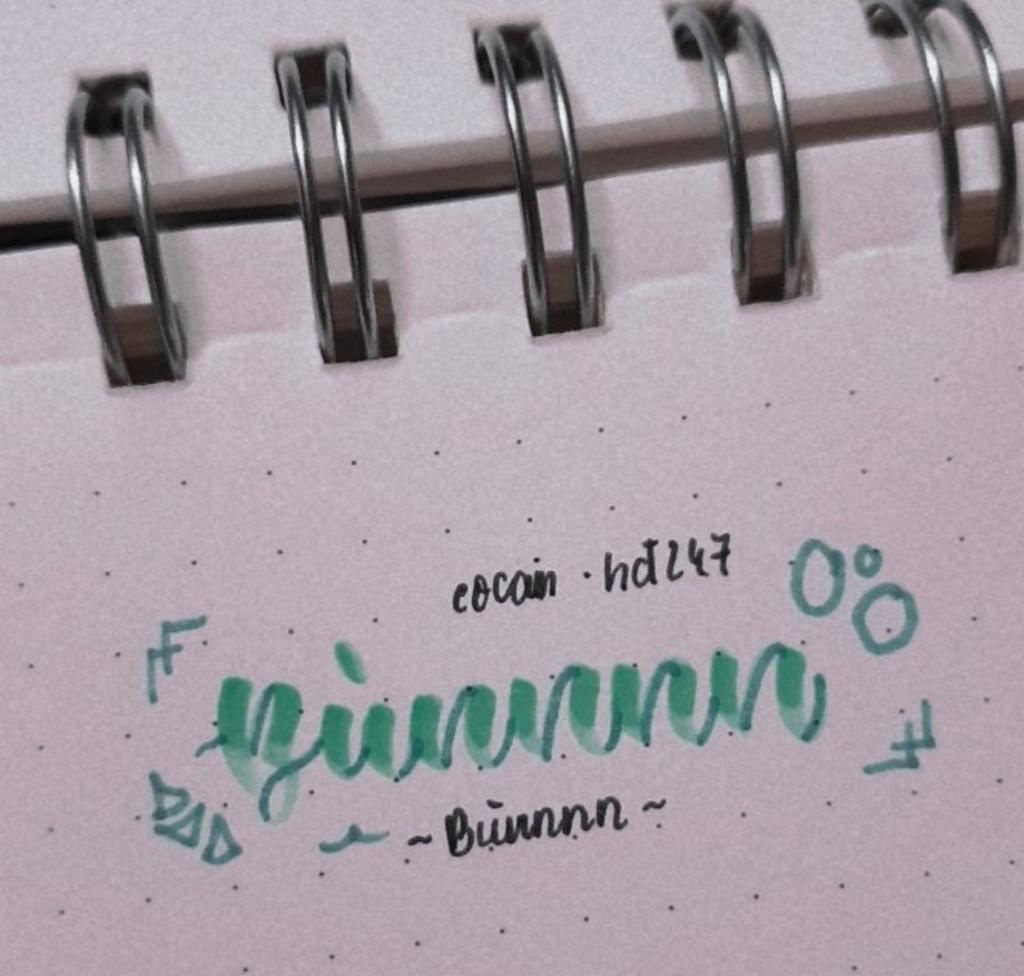 cocain · hd247
Bùnnnn
~ Bùnnnn ~